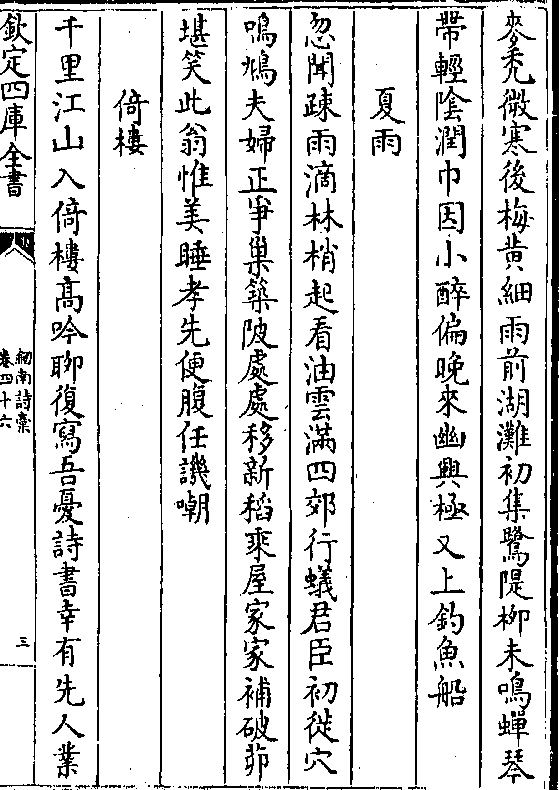 麥秃微寒後梅黄細雨前湖灘初集鷺隄栁未鳴蟬琴
帶輕隂潤巾因小醉偏晚來幽興極又上釣魚船
夏雨
忽聞疎雨滴林梢起看油雲滿四郊行蟻君臣初徙穴
鳴鳩夫婦正爭巢築陂處處移新稻乘屋家家補破茆
堪笑此翁惟美睡孝先便腹任譏嘲
倚樓
千里江山入倚樓髙吟聊復寫吾憂詩書幸有先人業
欽定四庫全書
劒南詩稾
卷四十六
三